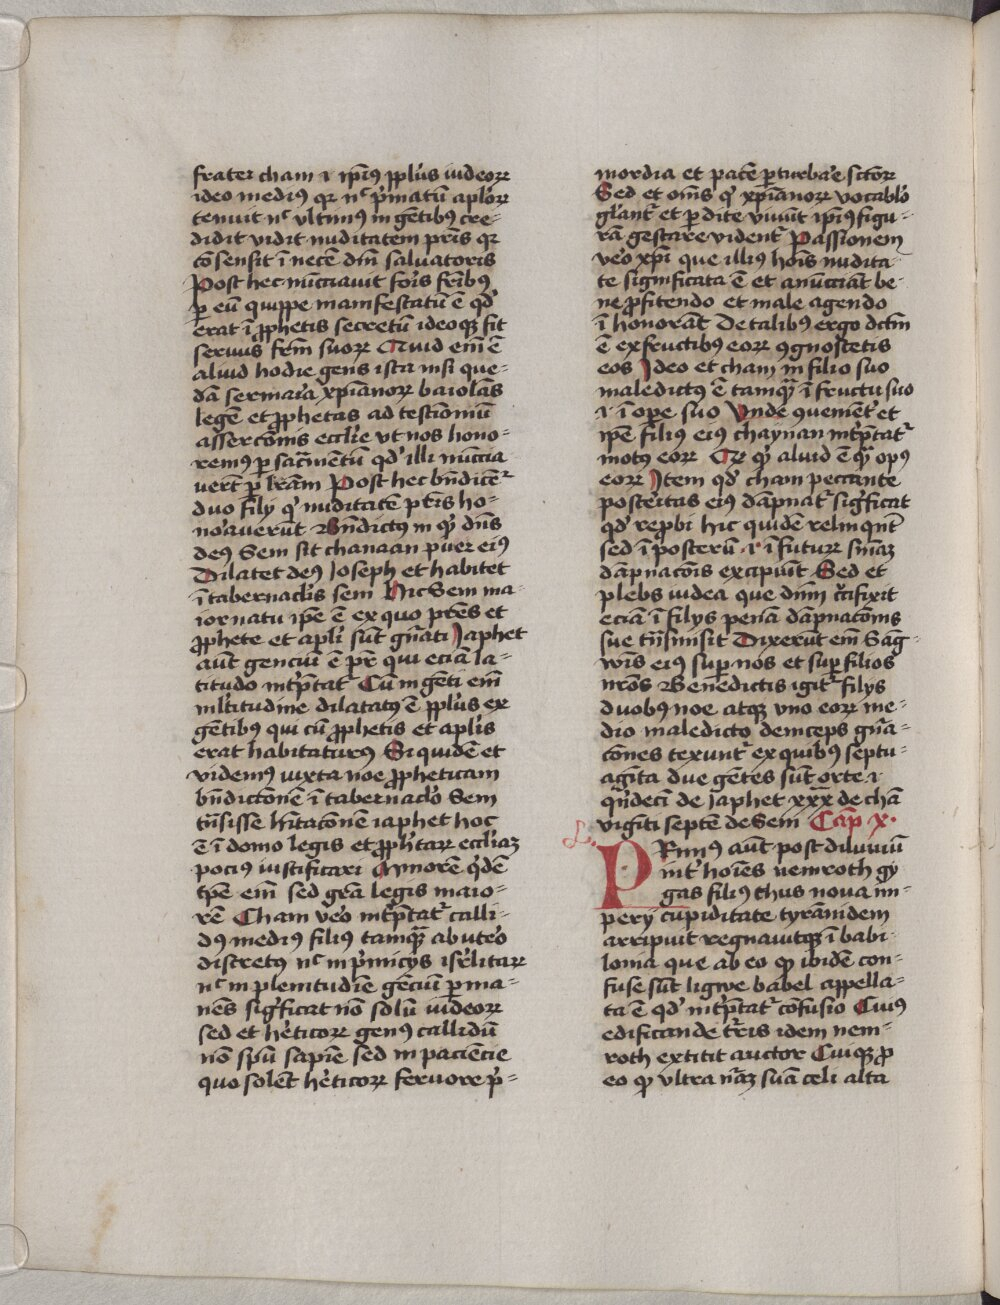 frater cham ⁊ ip̄iꝰ pp̄lus iudeoꝝ
ideo mediꝰ qꝛ nᶜ p̓matū apl̓oꝝ
tenuit nᶜ vltimꝰ in gētibꝰ cre-
didit vidit nuditatem pr̄is qꝛ
cōsensit ī necē dn̄i saluatoris
Post hec nūcciauit for̓s fr̄ibꝰ
ꝑ eū quippe manifestatū ē qd̓
erat ī ꝓphetis secretū ideoqꝫ fit
seruus fr̄m suoꝝ Quid em̄ ē
aliud hodie gens ista nisi que-
dā sermar̓a xp̄ianoꝝ baiolās
legē et ꝓphetas ad testīoniū
assercōnis eccl̓ie vt nos hono-
remꝰ ꝑ sac̄mentū qd̓ illi nūccia
uert̄ ꝑ lr̄am Post hec bn̄dicēr̓
duo filij q̓ nuditatē pr̄is ho-
no̓auerūt Bn̄dictꝰ in q̓ dn̄s
deꝰ Sem sit chanaan puer eiꝰ
Dilatet deꝰ Joseph et habitet
ī tabernacl̓is sem Hic Sem ma-
ior natu ip̄e ē ex quo pr̄es et
ꝓphete et apl̓i sūt gn̄ati Japhet
aūt genciū ē pr̄ qui eciā la-
titudo int̓p̄tatᷣ Cū in gēti em̄
ml̓titudine dilatatꝰ ē pp̄lus ex
gētibꝰ qui cū ꝓphetis et apl̓is
erat habitaturꝰ Si quidē et
videmꝰ iuxta noe ꝓpheticam
bn̄dictōnē ī tabernacl̓o Sem
tn̄sisse hītacōnē iaphet hoc
ē ī domo legis et ꝓph̓taꝝ eccl̓iaꝫ
pocius iustificari Mīorē q̓dē
tp̄e em̄ sed gr̄a legis maio-
rē Cham ve̓o int̓p̄tatᷣ calli-
dꝰ mediꝰ filiꝰ tamqᷓ̄ ab ute̓o
discretꝰ nᶜ in p̓micijs isr̓litaꝝ
nᶜ in plenitudīe gēciū ꝑma-
nēs sig̓ficat nō solū iudeoꝝ
sed et he̓ticoꝝ genꝰ callidū
nō spū sapīe sed inpaciencie
quo solēt he̓ticoꝝ feruore p̓-
mordia et patē ꝑturba̓e sc̄tōꝝ
Sed et oēs q̓ xp̄ianoꝝ vocabl̓o
gl̓antᷣ et ꝑdite viuūt ip̄iꝰ figu-
rā gestare videntᷣ Passionem
ve̓o xp̄i que illiꝰ hoīs nudita-
te significata ē et anūcciāt be-
ne ꝓfitendo et male agendo
ī honorāt De talibꝰ ergo dc̄m
ē ex fructibꝰ eoꝝ ꝯgnoscetis
eos Ideo et cham in filio suo
maledictꝰ ē tamqᷓ̄ ī fructu suo
.i. ī ope suo Vnde ꝯueniēt̓ et
ip̄e filiꝰ eiꝰ chaynan int̓p̄tatᷣ
motꝰ eoꝝ Qꝛ q̓ aliud ē qᷓ̄ opꝰ
eoꝝ Item qd̓ cham peccante
poste̓itas eiꝰ dāpnatᷣ sig̓ficat
qd̓ rep̓bi hic quidē relinqn̄t̓
sed ī posterū .i. ī futuꝝ sn̄iaꝫ
dāpnacōis excipiūt Sed et
plebs iudea que dn̄m c̓cifixit
eciā ī filijs penā dāpnacōnis
sue tn̄smisit Dixerūt em̄ Sāg-
wīs eiꝰ suꝑ nos et suꝑ filios
nr̄os Benedictis igitᷣ filijs
duobꝰ noe atqꝫ vno eoꝝ me-
dio maledicto deinceps gn̄a-
cōnes texuntᷣ ex quibꝰ septu-
agīta due gētes sūt orte .i.
qn̓decī de Japhet xxx de chā
vigīti septē de Sem Cap̄ x.
PRimꝰ aūt post diluuiū
int̓ hoīes nemroth gy
gas filiꝰ thus noua im-
perij cupiditate tyrānidem
arripuit regnauitqꝫ ī babi-
lonia que ab eo qꝫ ibidē con-
fuse sūt ligwe babel appella-
ta ē qd̓ int̓p̄tatᷣ cōfusio Cuiꝰ
edificande tr̓ris idem nem-
roth extitit auctor Cuiqꝫ ꝓ
eo qꝫ vltra n̄aꝫ suā celi alta